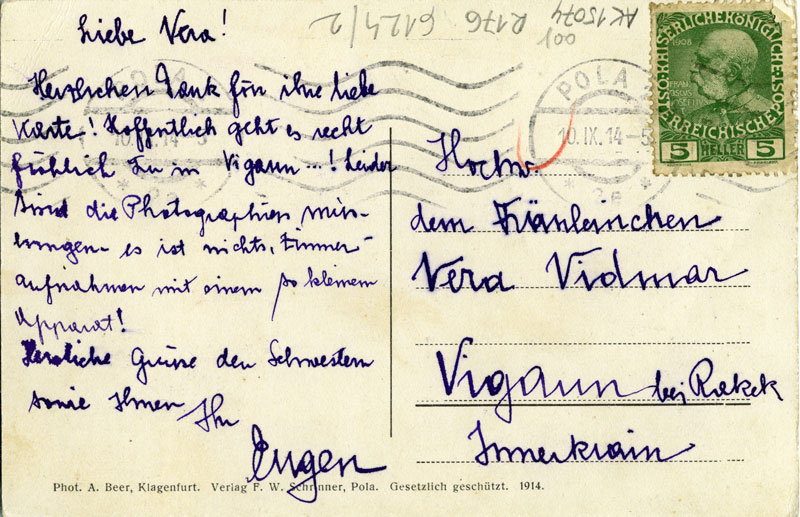 AK15074
001
R176
6124/2
Liebe Vera!
Herzlichen Dank für ihre liebe
Karte! Hoffentlich geht es recht
fröhlich zu in Vigaun ...! Leider
sind die Photographien miss-
lungen - es ist nichts, Zimmer-
aufnahmen mit einem so kleinem
Apparat!
Herzliche Grüsse den Schwestern
sowie Ihnen Ihr
Eugen
POLA
10.IX.14-5
2e
1908
5 HELLER 5
Hochw.
dem Fräuleinchen
Vera Vidmar
Vigaun bei Rakek
Innerkrain
Phot. A. Beer, Klagenfurt. Verlag F. W. Schrinner, Pola. Gesetzlich geschützt. 1914.